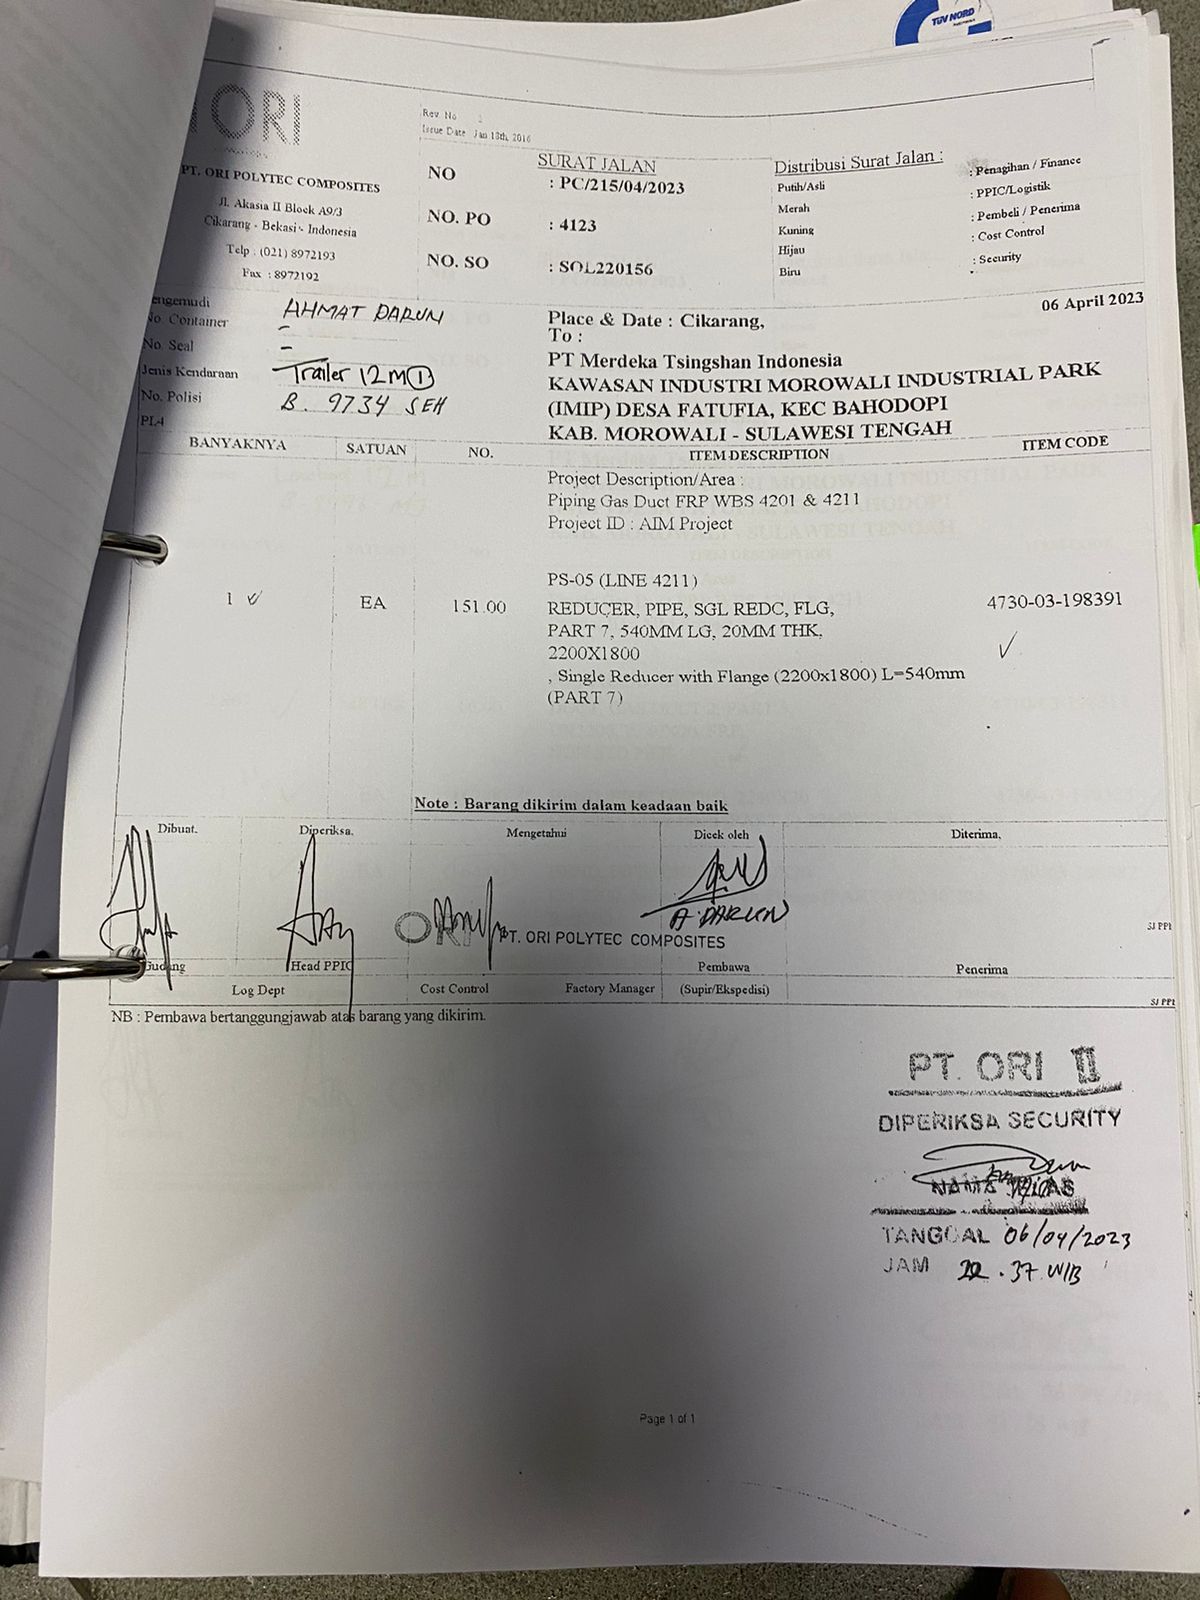 TÜV NORD
ORI
PT. ORI POLYTEC COMPOSITES
Jl. Akasia II Block A9/3
Cikarang - Bekasi - Indonesia
Telp . (021) 8972193
Fax : 8972192
Rev. No 2
Issue Date Jan 13th, 2016
SURAT JALAN
NO : PC/215/04/2023
NO. PO : 4123
NO. SO : SOL220156
Distribusi Surat Jalan :
Putih/Asli : Penagihan / Finance
Merah : PPIC/Logistik
Kuning : Pembeli / Penerima
Hijau : Cost Control
Biru : Security
engemudi AHMAT DARUN
No. Container -
No. Seal -
Jenis Kendaraan Trailer 12M 1
No. Polisi B. 9734 SEH
PL4
06 April 2023
Place & Date : Cikarang,
To :
PT Merdeka Tsingshan Indonesia
KAWASAN INDUSTRI MOROWALI INDUSTRIAL PARK
(IMIP) DESA FATUFIA, KEC BAHODOPI
KAB. MOROWALI - SULAWESI TENGAH
BANYAKNYA SATUAN NO. ITEM DESCRIPTION ITEM CODE
Project Description/Area :
Piping Gas Duct FRP WBS 4201 & 4211
Project ID : AIM Project
PS-05 (LINE 4211)
1 EA 151.00 REDUCER, PIPE, SGL REDC, FLG, 4730-03-198391
PART 7, 540MM LG, 20MM THK,
2200X1800
, Single Reducer with Flange (2200x1800) L=540mm
(PART 7)
Note : Barang dikirim dalam keadaan baik
Dibuat. Diperiksa. Mengetahui Dicek oleh Diterima,
A. DARUN
ORI PT. ORI POLYTEC COMPOSITES
SJ PPI
Gudang Head PPIC Pembawa Penerima
Log Dept Cost Control Factory Manager (Supir/Ekspedisi)
SJ PPI
NB : Pembawa bertanggungjawab atas barang yang dikirim.
PT. ORI II
DIPERIKSA SECURITY
NAMA
TANGGAL 06/04/2023
JAM 22.37 WIB
Page 1 of 1